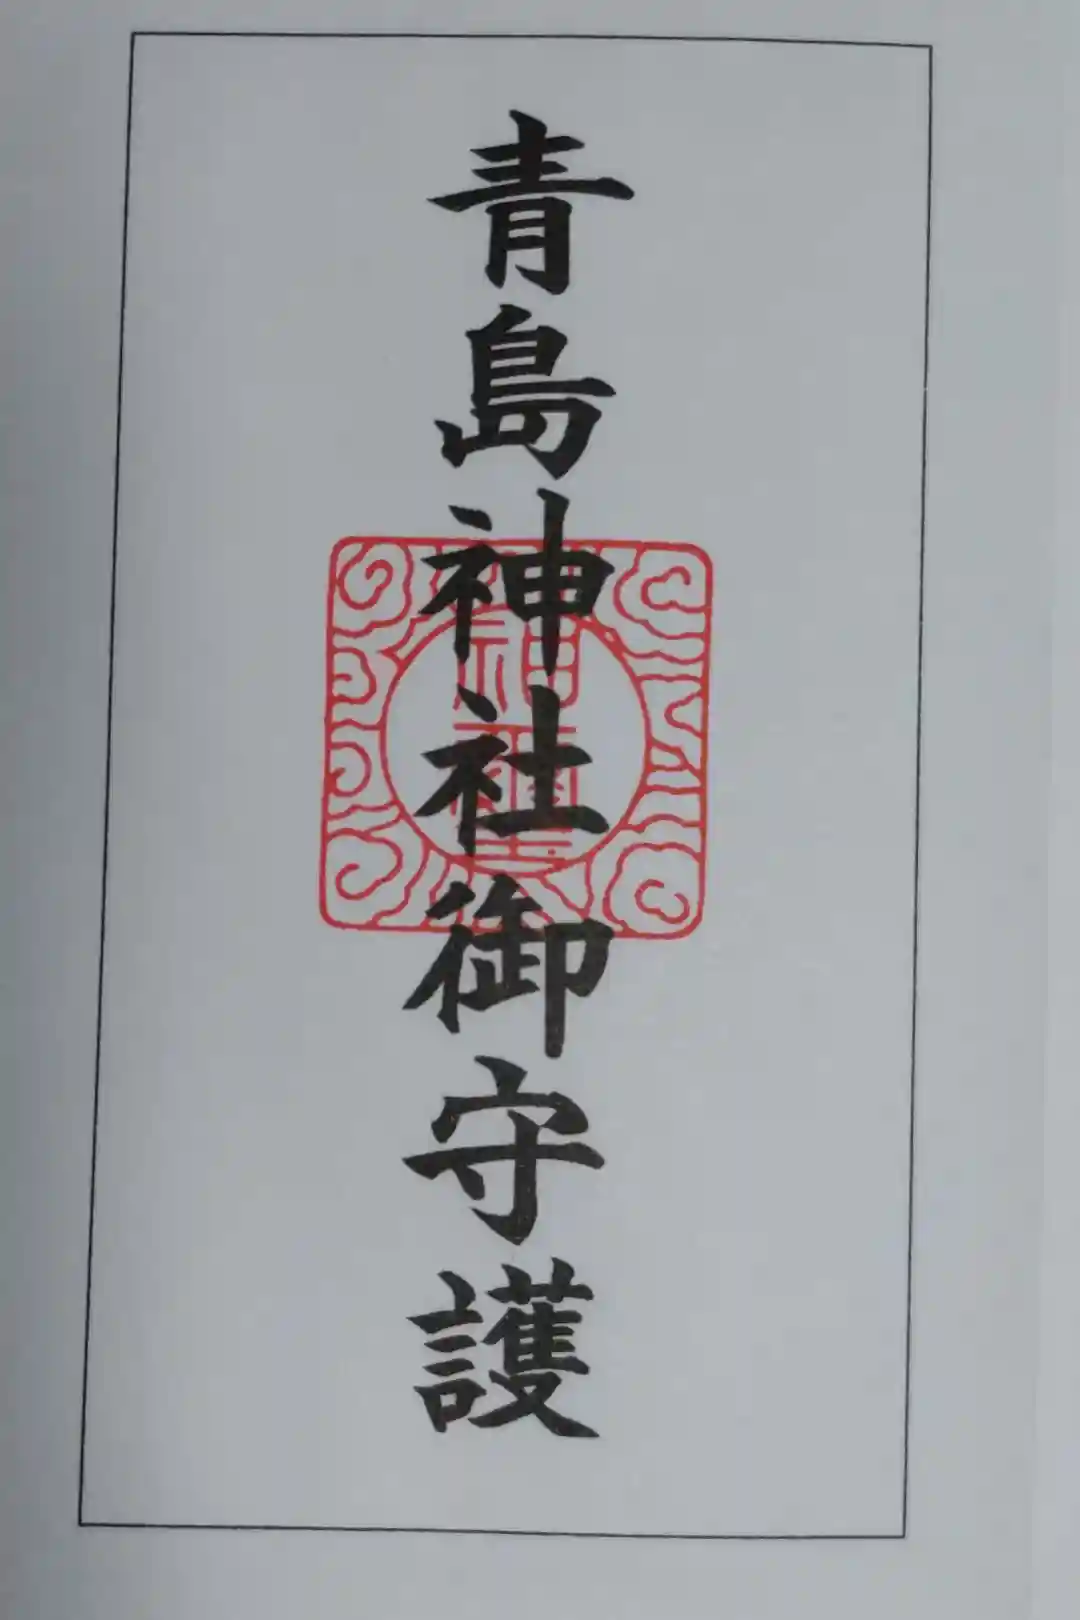 青島神社御守護